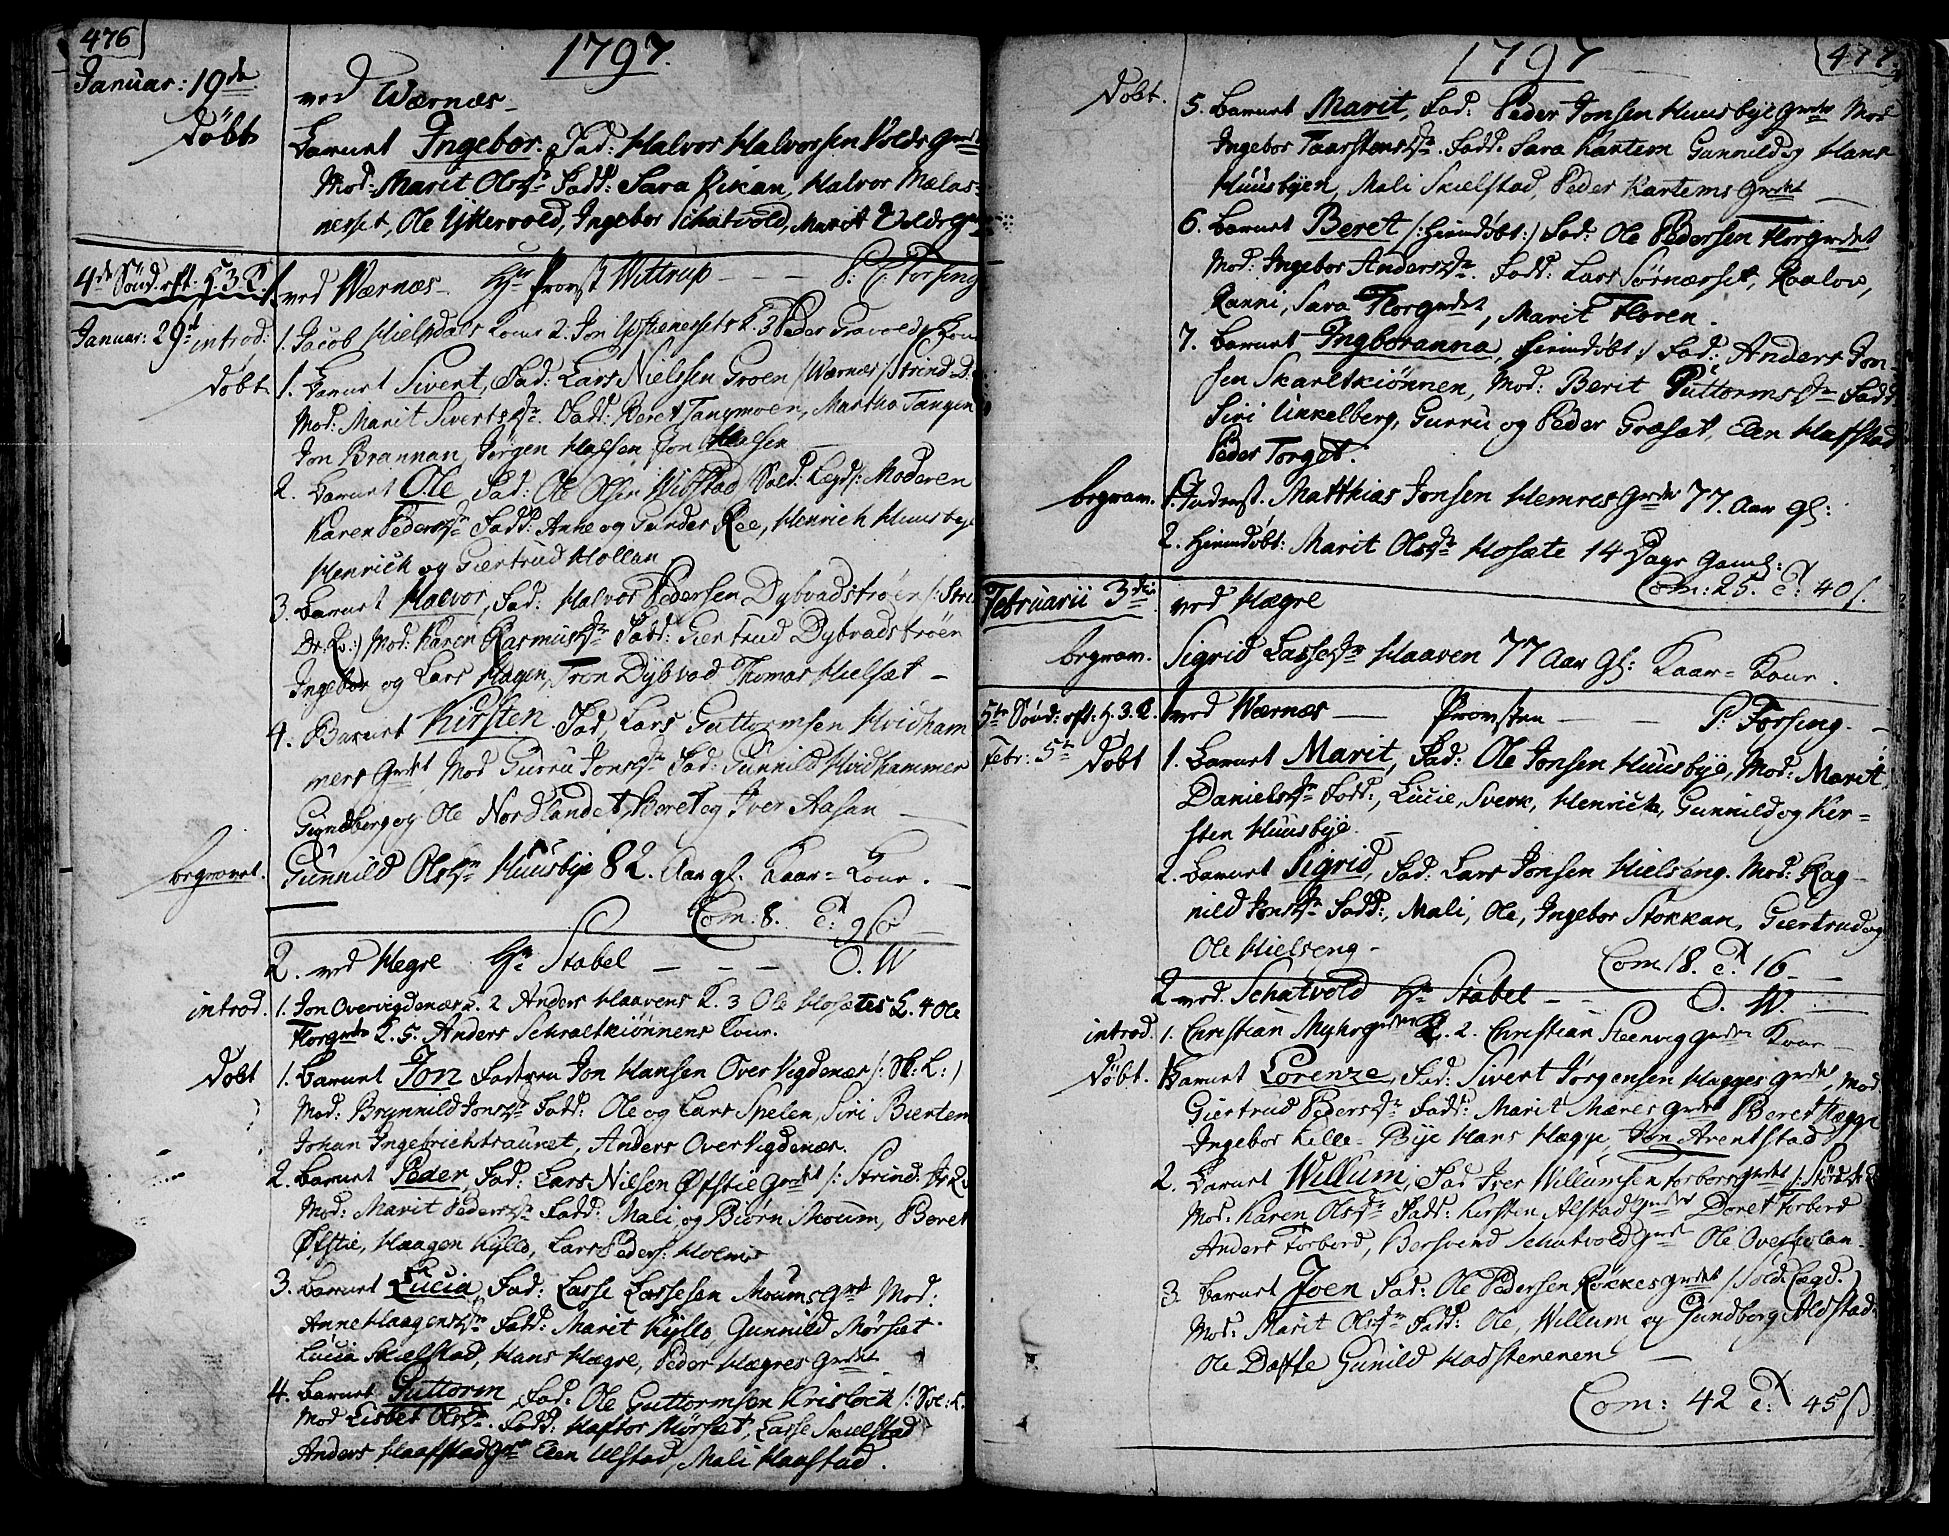 476
1797.
Januar: 19de
ved Wærnæs
Døbt
Barnet Ingebor. Fad: Halvor Halvorssen Volds Grd
Mod: Marit Olsdr Fadd: Sara Rikan, Halvor Mælas-
nesset, Ole Yttervold, Ingebor Schatvold, Marit
4de Sönd. eft. H.3.K.
1. ved Wærnæs. Hr Provst Wittrup - - - P. Forsing
Januar: 29de introd:
1. Jacob Hielsdals Kone 2. Jon K. 3 Peder Kone
døbt
1. Barnet Sivert, Fad: Lars Nielssen Groen /Wærnæs/ Strind. D.
Mod: Marit Sivertsdr. Fadd: Beret Tangmoen, Martha Tangen
Jon Brannan, Jørgen Halsen, Jon Halsen
2. Barnet Ole, Fad: Ole Olsen Sold: Lægd: Moderen
Karen Pedersdr Fadd: Anne og Gunder Ree, Henrich Huusbye
Henrich og Giertrud Hollan
3. Barnet Halvor, Fad: Halvor Pedersen Dybvadstrøen /: Stri
Dr. Co:) Mod: Karen Rasmusdr Fadd: Giertrud Dybvadstrøen
Ingebor og Lars Hagen, Tron Dybvad Thomas Hielsæt -
4. Barnet Kirsten. Fad, Lars Guttormsen Hvidham
mers Grdet Mod Gurru Jonsdr Fad: Gunnild Hvidhammer
Gundberg og Ole Nordlandet, Beret og Iver Aasan
begravet.
Gunnild Olsdr Huusbye 82. Aar gl. Kaar = Kone.
Com: 8.
2. ved Hegre Hr Stabel - - - O. W
introd.
1. Jon Overvigdenæs K. 2 Anders Haavens K. 3 Ole Hosætes K. 4 Ole
Florgrds K. 5. Anders Schraltkiønnens Kone.
Døbt
1. Barnet Jon Faderen Jon Hansen Over Vigdenæs /: Sk: L:)
Mod: Brynnild Jonsdr Fadd: Ole og Lars Spelen, Siri Biertem
Johan Ingebrichtsaunet, Anders Over Vigdenæs.
2. Barnet Peder Fad: Lars Nielsen Øfstie Grdet /: Strind: Dr. L:
Mod: Marit Pedersdr Fadd: Mali og Biørn Moum, Beret
Øfstie, Haagen Kyllo, Lars Peders: Holmo
3. Barnet Lucia, Fad: Lasse Lassesen Moums Grd Mod:
Anne Haagensdr Fadd: Marit Kyllo, Gunnild Mørsæt.
Lucia Skielstad, Hans Hægre, Peder Hægres Grdet
4. Barnet Guttorm, Fad: Ole Guttormsen Krislock /: Sol: L.
Mod Lisbet Olsdr. Fadd: Haftor Mørsæt, Lasse Skielstad
Anders Haafstad Grd Elen Ulstad, Mali Haafstad.
1797
477.
Døbt.
5. Barnet Marit, Fad: Peder Jonsen Huusbye Grds Mod
Ingebor Taarstensdr. Fadd. Sara Kartem Gunnild og Hans
Huusbyen, Mali Skielstad, Peder Kartems Grdet
6. Barnet Beret /: Hiemdøbt:) Fad: Ole Pedersen Florgrdet
Mod: Ingebor Andersdr. Fadd: Lars Sørnærset, Roalov,
Ranni, Sara Florgrdet, Marit Floren.
7. Barnet Ingboranna, Hiemdøbt:/ Fad: Anders Jon-
sen Skaeltkiønnen, Mod: Berit Guttormsdr Fadd
Siri Unkelberg, Gurru og Peder Græsæt, Elen Haffstad
Peder Torget.
begrav.
1. Inderst. Matthias Jonsen Hemres Grds 77. Aar gl:
2. Hiemdøbt: Marit Olsdr Hosæte 14 Dage Gamel:
Com: 25. T: 40 s.
Februarii 3die
ved Hægre
begrav.
Sigrid Lassedr Haaven 77 Aar Gl: Kaar = Kone.
5te Sönd: eft: H. 3. K.
1. ved Wærnæs - Provsten - - P. Forsing. -
Febr: 5te Døbt
1. Barnet Marit, Fad: Ole Jonsen Huusbye, Mod: Marit
Danielsdr Fadd:, Lucie, Sverk, Henrich, Gunnild og Kir=
sten Huusbye.
2. Barnet Sigrid, Fad. Lars Jonsen Hielseng. Mod: Rag-
nild Jonsdr Fadd:, Mali, Ole, Ingebor Stokkan, Giertrud og
Ole Hielseng -
Com 18. T. 16 -
2 ved. Schatvold Hr Stabel - - O. W.
introd.
1. Christian Myhrgrdens K. 2. Christian Steenvig Grdens Kone -
Døbt.
1. Barnet Lorentze, Fad: Sivert Jørgensen Hægges Grdet, Mod
Giertrud Pedersdr Fadd: Marit Mæres Grdet Beret Hægge
Ingebor Lille-Bye Hans Hægge, Jon Arentstad
2. Barnet Willum, Fad Iver Willumsen Forbors Grdet /: Stördal:
Mod: Karen Olsdr Fadd: Kirsten Alstad Grdet Doret Forbord
Anders Forbord, Bersvend Schatvold Grd Ole Overholan -
3. Barnet Joen Fad: Ole Pedersen Røkkes Grdet /: Sold. Lægd.
Mod: Marit Olsdr Fadd: Ole, Willum og Gundberg Aldstad
Ole Dafle Gunild Hadstenenen -
Com: 42 T: 45 s